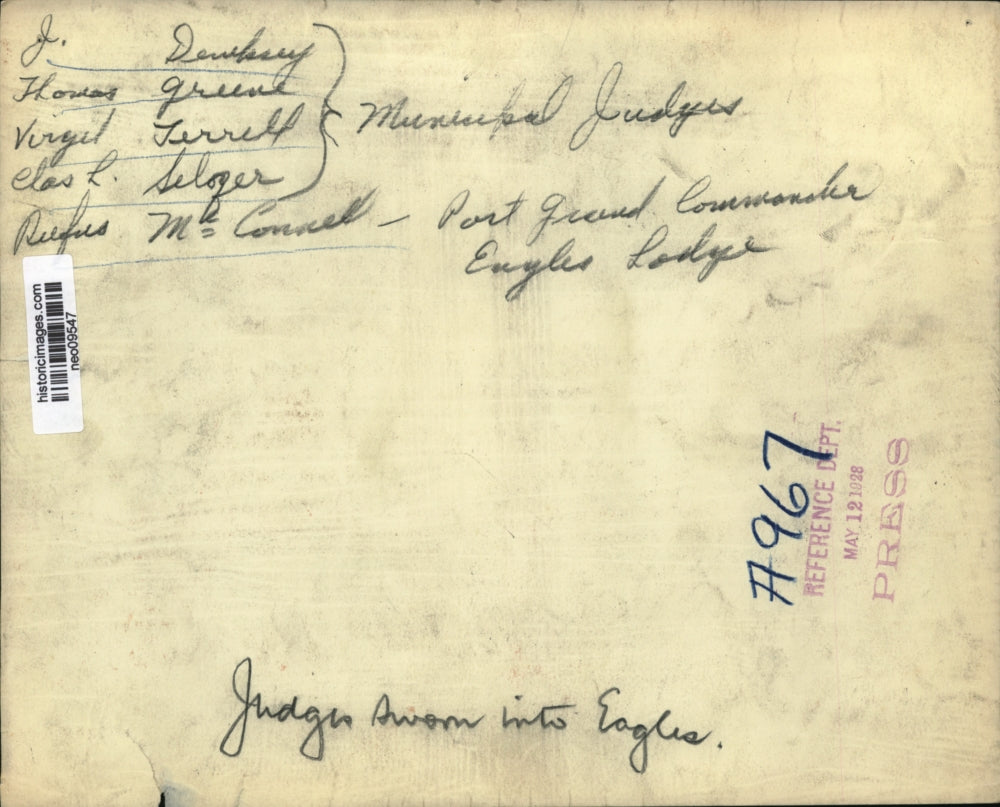 J. Dewksey
Thomas Greene
Virgil Terrell
Chas L. Selzer
Municipal Judges
Rufus Mc Connell - Past Grand Commander
Eagles Lodge
historicimages.com
neo09547
A967
REFERENCE DEPT.
MAY 12 1928
PRESS
Judges sworn into Eagles.